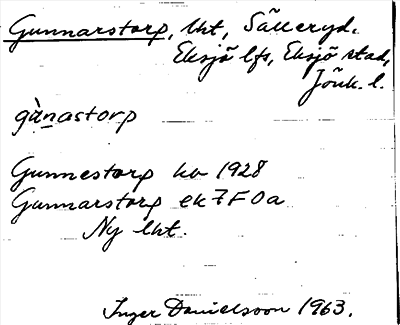 Gunnarstorp, lht, Sälleryd.
Eksjö lfs, Eksjö stad,
Jönk. l.
gùnastorp
Gunnestorp ka 1928
Gunnarstorp ek 7 F 0a
Ny lht.
Inger Danielsson 1963.